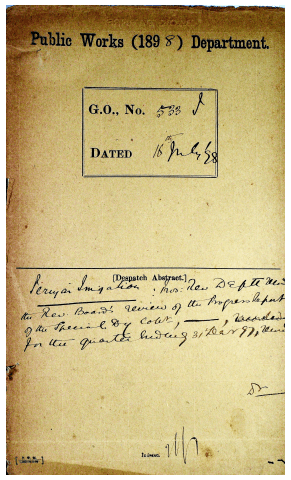 Public Works (1898) Department.
G.O., No. 533 I
DATED 16th July 98
[Despatch Abstract.]
Periyar Irrigation. Rev. Deptt
the Rev. Board's review of the Progress Report
of the Special Dy Collr, —, recorded
for the quarter ending 31 Dec 97,
Indexed